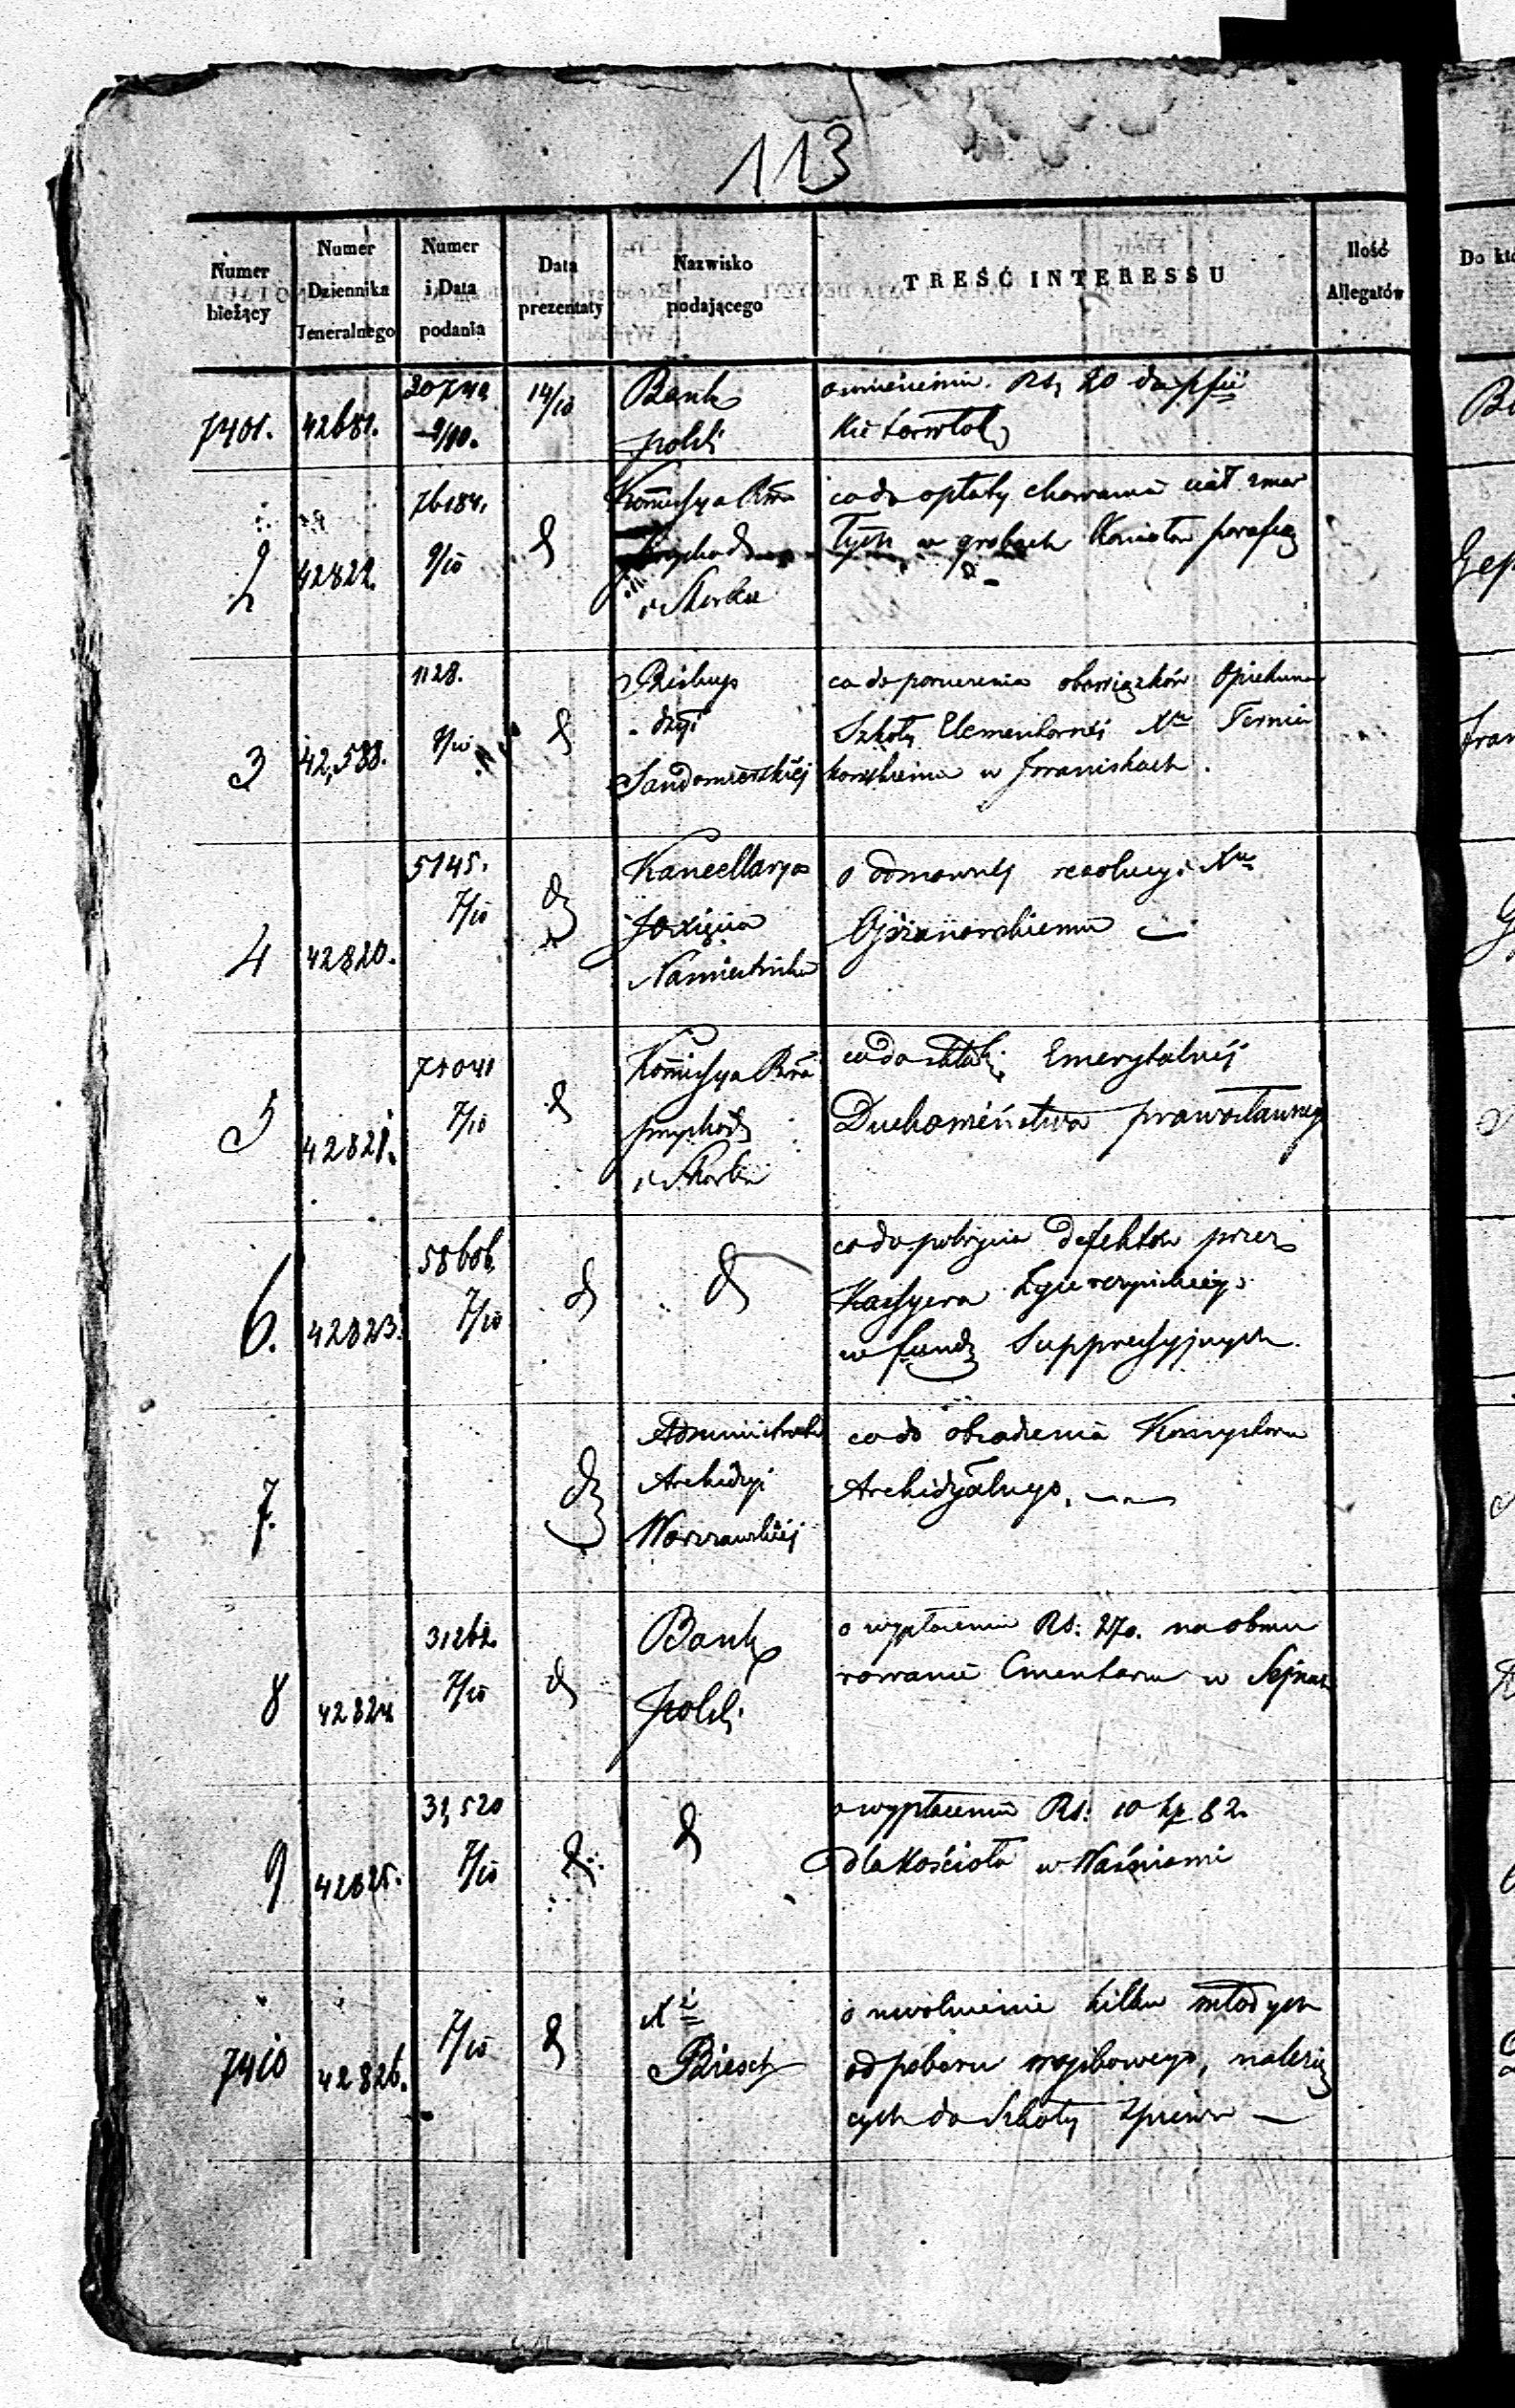 113
Numer bieżący
Numer Dziennika Jeneralnego
Numer i Data podania
Data prezentaty
Nazwisko podającego
TREŚĆ INTERESSU
Ilość Allegatów
Do któ
7401. 42681. 9/10. 14/10 Bank
Polski
o umieszczeniu Rs, 20 do
2 42822. 76184. 9/10 d Kommissya
Przychod
i Skarbu
co do opłaty chowania ciał zmar
łych w grobach
3 42,588. 1128. 9/10 d Biskup
dyi
Sandomierskiej
co do poruczenia obowiązków Opiekuna
Szkoły Elementarnéj Xu
w Iwaniskach.
4 42820. 5145. 7/10 d Kancellarya
JO Xięcia
Namiestnika
o odmownéj rezolucyi Xu
5 42821. 7/10 d Kommissya
przychod
i Skarbu
co do składki Emerytalnéj
Duchowieństwa prawosławnego
6. 42823. 58606. 7/10 d d
co do pokrycia defektów przez
Kassyera
w fund Suppressyjnych.
7. d Administrator
Archidyi
Warszawskiéj
co do obsadzenia Konsystorza
Archidyalnego.
8 42824. 31262. 7/10 d Bank
Polski
o wypłacenie Rs: 270. na obmu
rowanie Cmentarza w Sejnach
9 42825. 31,520 7/10 d d
o wypłacenie Rs: 10 kp 82.
dla Kościoła w
7410 42826. 7/10 d X
o uwolnienie kilku młodych
od poboru wojskowego, należą
cych do Szkoły